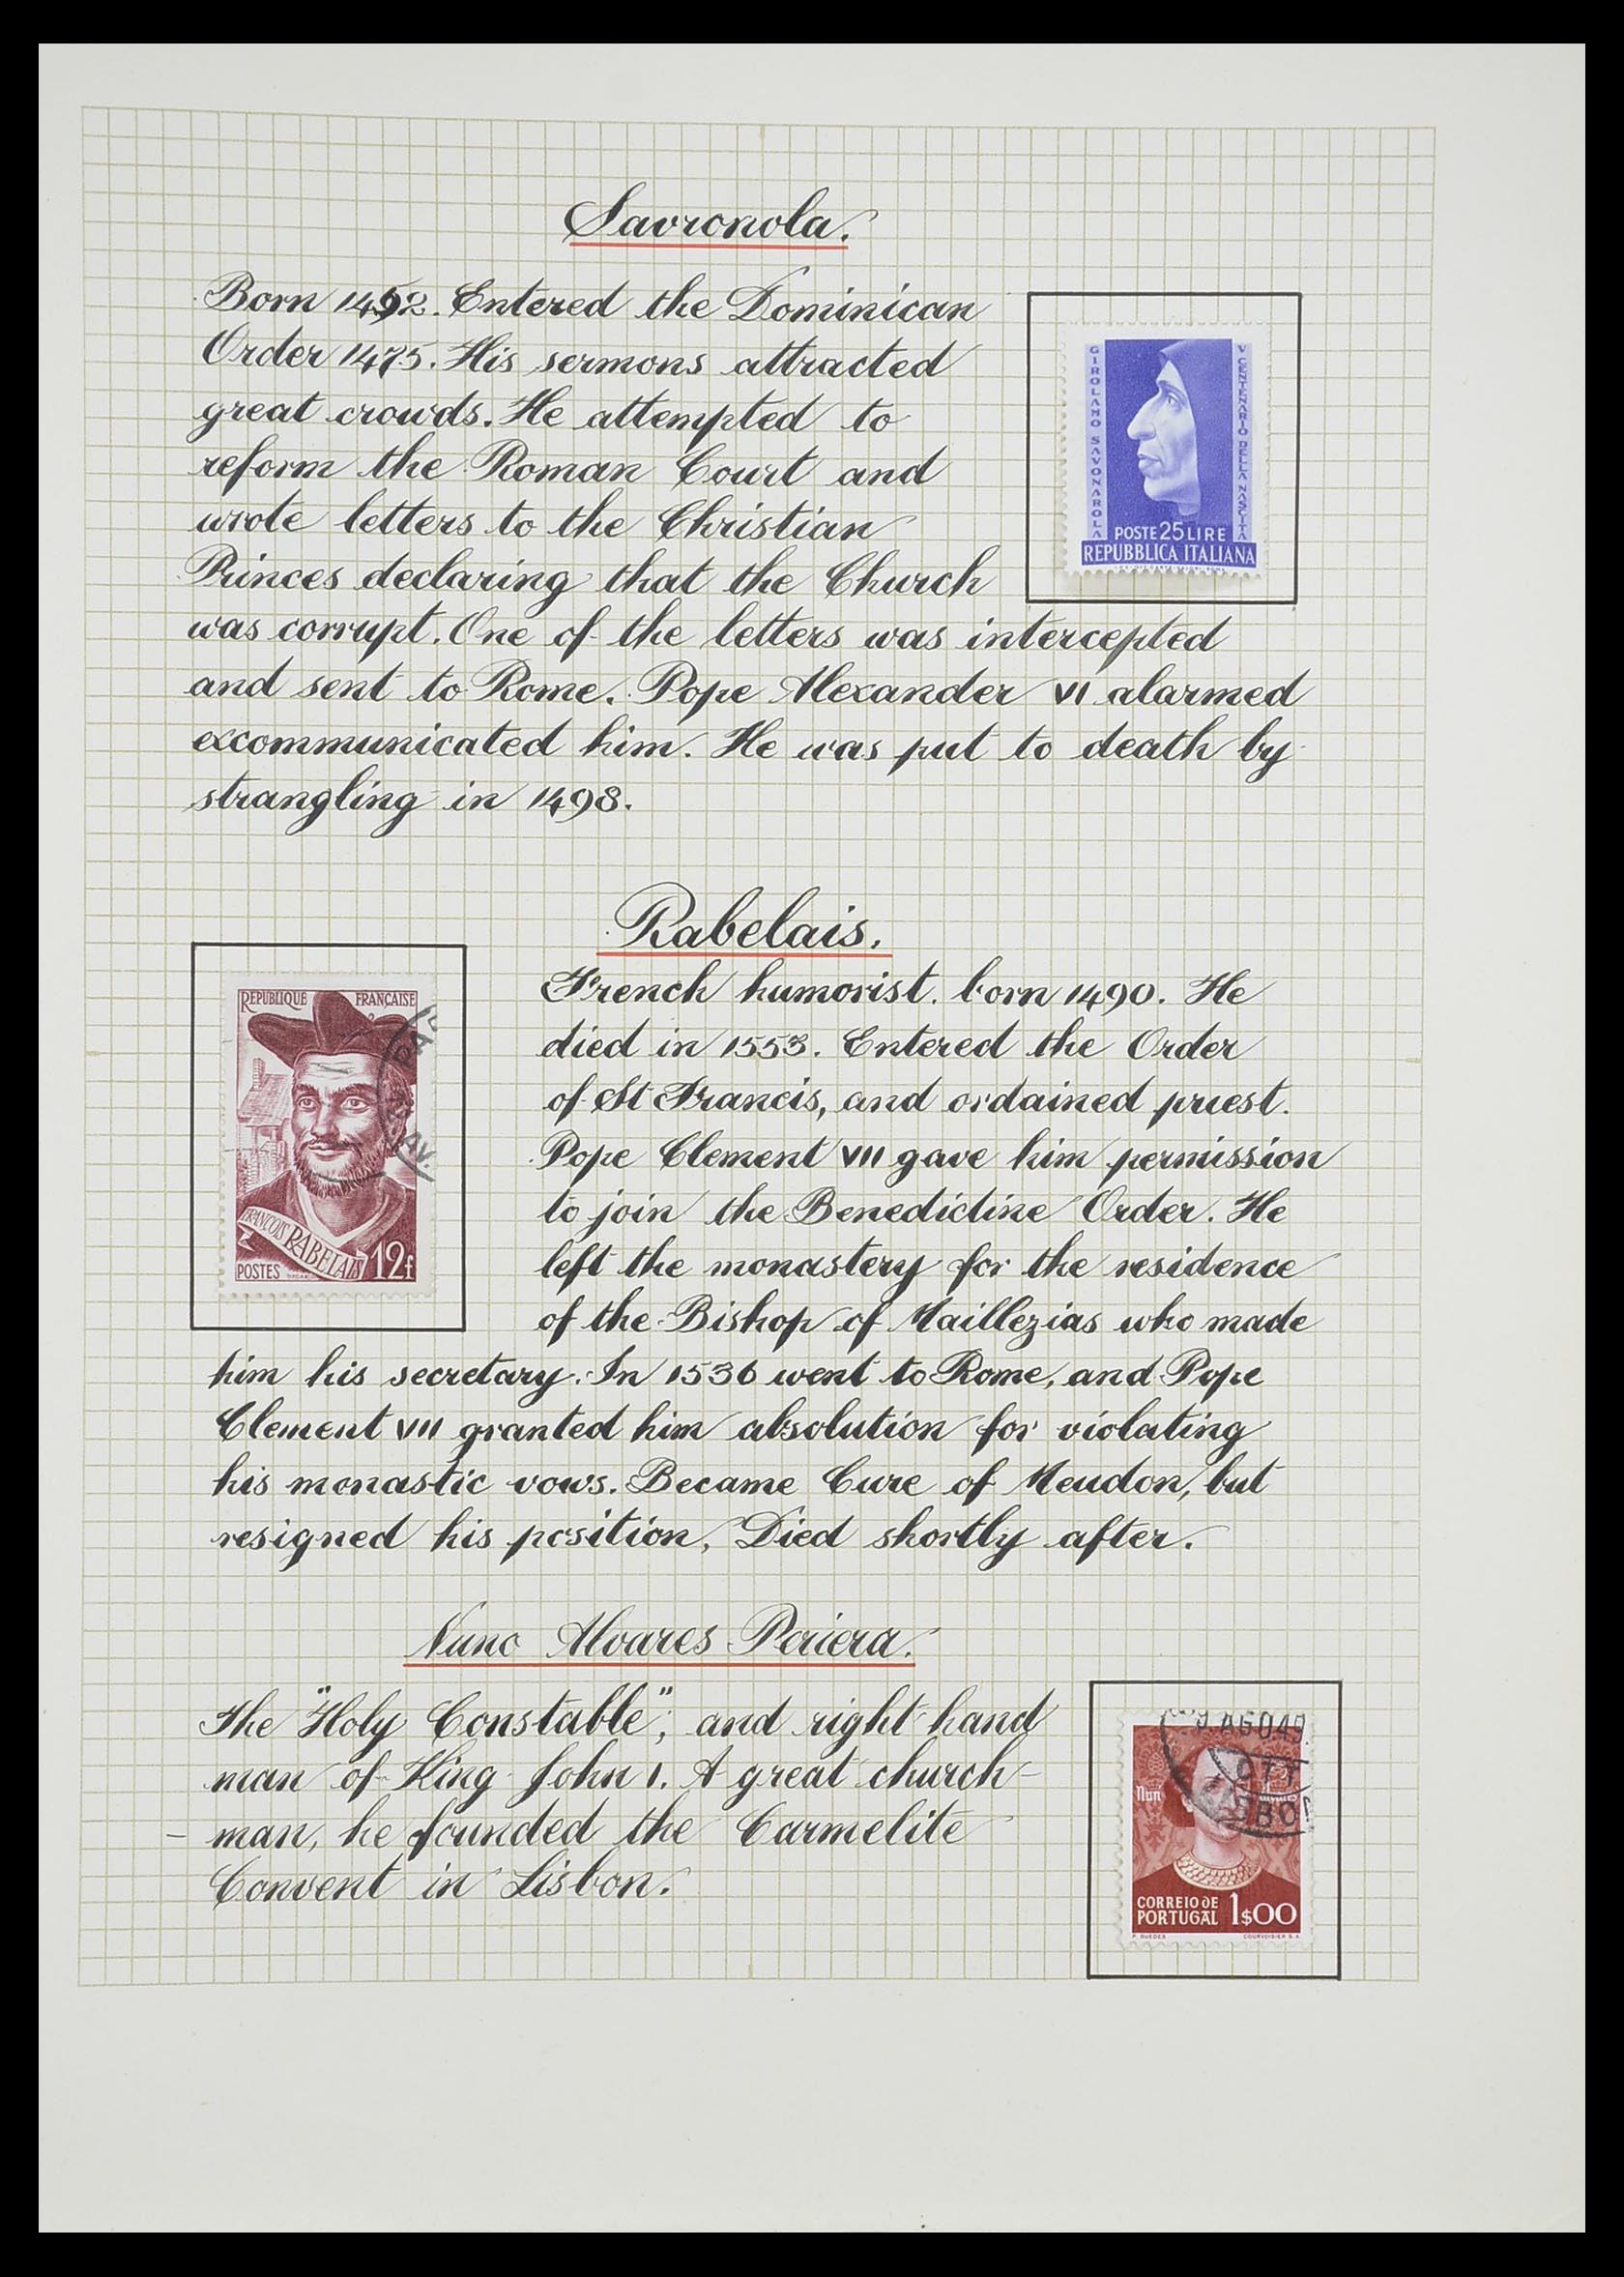 Savronola.
Born 1452. Entered the Dominican
Order 1475. His sermons attracted
great crowds. He attempted to
reform the Roman Court and
wrote letters to the Christian
Princes declaring that the Church
was corrupt. One of the letters was intercepted
and sent to Rome. Pope Alexander VI alarmed
excommunicated him. He was put to death by
strangling in 1498.
GIROLAMO SAVONAROLA
V CENTENARIO DELLA NASCITA
POSTE 25 LIRE
REPUBBLICA ITALIANA
Rabelais.
REPUBLIQUE FRANÇAISE
FRANÇOIS RABELAIS
POSTES 12f
French humorist. born 1490. He
died in 1553. Entered the Order
of St Francis, and ordained priest.
Pope Clement VII gave him permission
to join the Benedictine Order. He
left the monastery for the residence
of the Bishop of Maillezias who made
him his secretary. In 1536 went to Rome, and Pope
Clement VII granted him absolution for violating
his monastic vows. Became Cure of Meudon, but
resigned his position, Died shortly after.
Nuno Alvares Periera.
The "Holy Constable", and right hand
man of King John I. A great church-
- man, he founded the Carmelite
Convent in Lisbon.
AGO49
CTT
Nun
CORREIO DE
PORTUGAL 1$00
P. GUEDES COURVOISIER S.A.